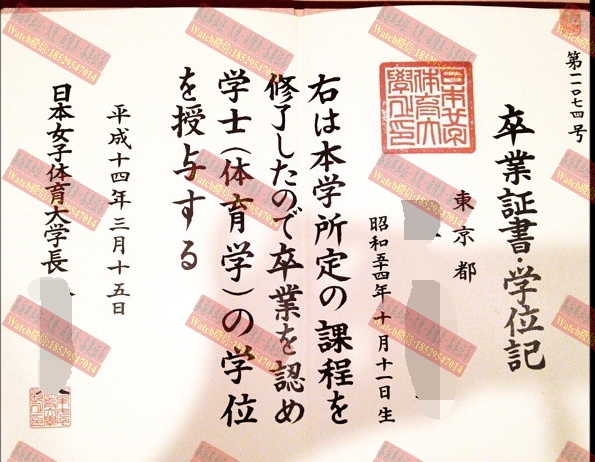 第一一〇七四号
卒業証書・学位記
東京都
昭和五十四年十月十一日生
右は本学所定の課程を
修了したので卒業を認め
学士(体育学)の学位
を授与する
平成十四年三月十五日
日本女子体育大学長
Watch微信:18529547014